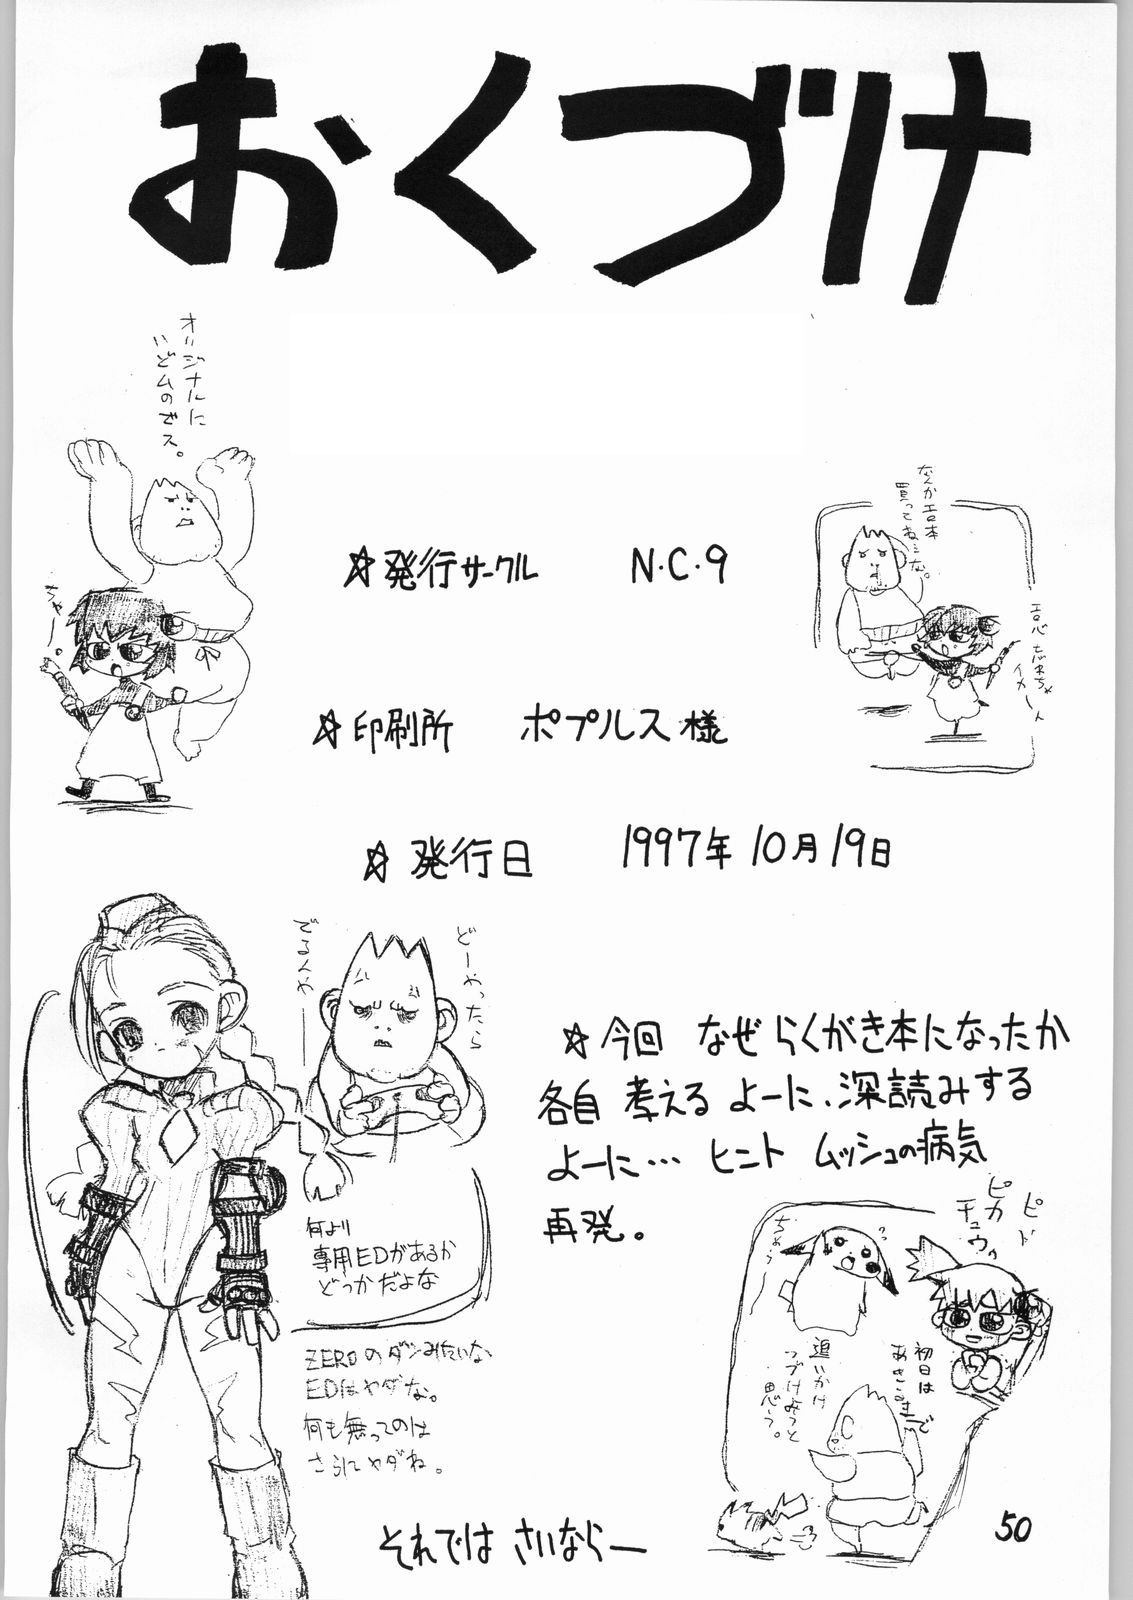 おくづけ
オリジナルに
いどムのでス。
ちゃー。
☆発行サークル N・C・9
なんかエロ本
買ってねぇな。
☆印刷所 ポプルス様
☆発行日 1997年10月19日
どーやったら
でるんや――
何より
専用EDがあるか
どっかだよな
ZEROのダンみたいな
EDはヤダな。
何も無ってのは
さらにヤダね。
☆今回 なぜ らくがき本になったか
各自 考える よーに、深読みする
よーに… ヒニト ムッシュの病気
再発。
ピカ
チュウゥ
初日は
あきるまで
追いかけ
つづけようと
思う。
それでは さいならー
50